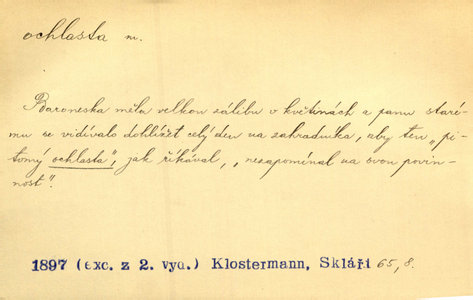 ochlasta m.
Baroneska měla velkou zálibu v květinách a panu staré-
mu se vídávalo dohlížet celý den na zahradníka, aby ten „pi-
tomý ochlasta", jak říkával, „nezapomínal na svou povin-
nost".
1897 (exc. z 2. vyd.) Klostermann, Skláři 65, 8.